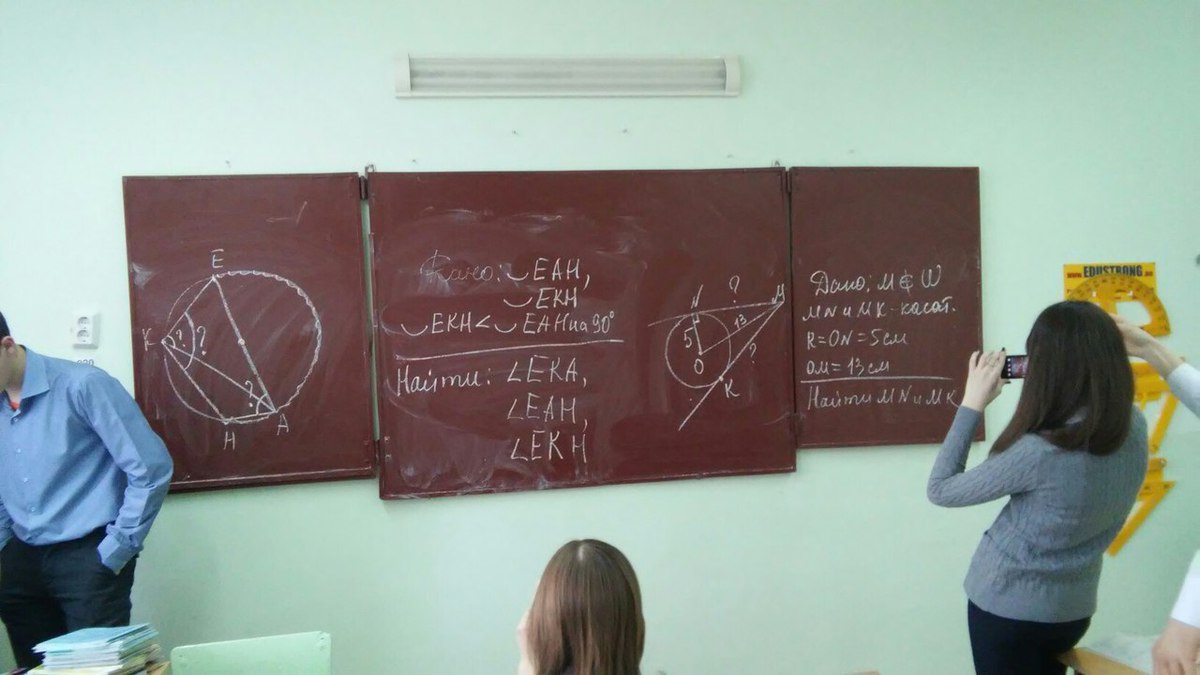 E
K
?
?
?
H
A
Дано: ◡EAH,
◡EKH
◡EKH < ◡EAH на 90°
Найти: ∠EKA,
∠EAH,
∠EKH
N
?
M
5
13
O
?
K
Дано: M ∉ W
MN и MK - касат.
R=ON=5см
OM=13см
Найти MN и MK
EDUSTRONG